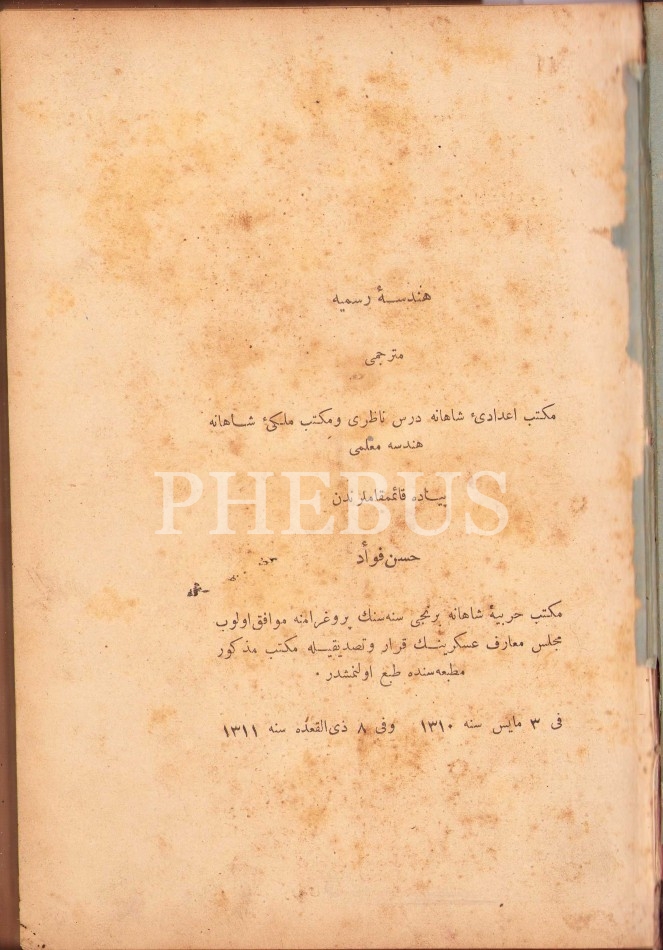 هندسهٔ رسمیه
مترجمی
مکتب اعدادیٔ شاهانه درس ناظری ومکتب ملکیٔ شاهانه
هندسه معلمی
PHEBUS
پیاده قائممقاملرندن
حسن فوأد
مکتب حربیهٔ شاهانه برنجی سنه‌سنك پروغرامنه موافق اولوب
مجلس معارف عسکرینك قرار وتصدیقیله مکتب مذکور
مطبعه‌سنده طبع اولنمشدر ٠
فی ٣ مایس سنه ١٣١٠ وفی ٨ ذی‌القعده سنه ١٣١١